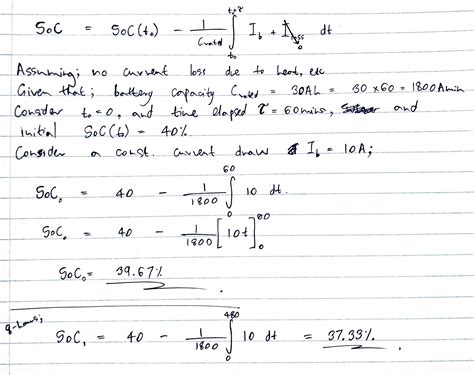 SoC = SoC(t₀) - 1/C_rated ∫_{t₀}^{t₀+τ} I_b + I_loss dt
Assuming; no current loss due to heat, etc
Given that; battery capacity C_rated = 30Ah = 30 x 60 = 1800 Amin
Consider t₀ = 0, and time elapsed τ = 60mins, and
initial SoC(t₀) = 40%
Consider a const. current draw I_b = 10A;
SoC₀ = 40 - 1/1800 ∫_0^{60} 10 dt.
SoC₀ = 40 - 1/1800 [10t]_0^{60}
SoC₀ = 39.67%
8-hours;
SoC₁ = 40 - 1/1800 ∫_0^{480} 10 dt = 37.33%.